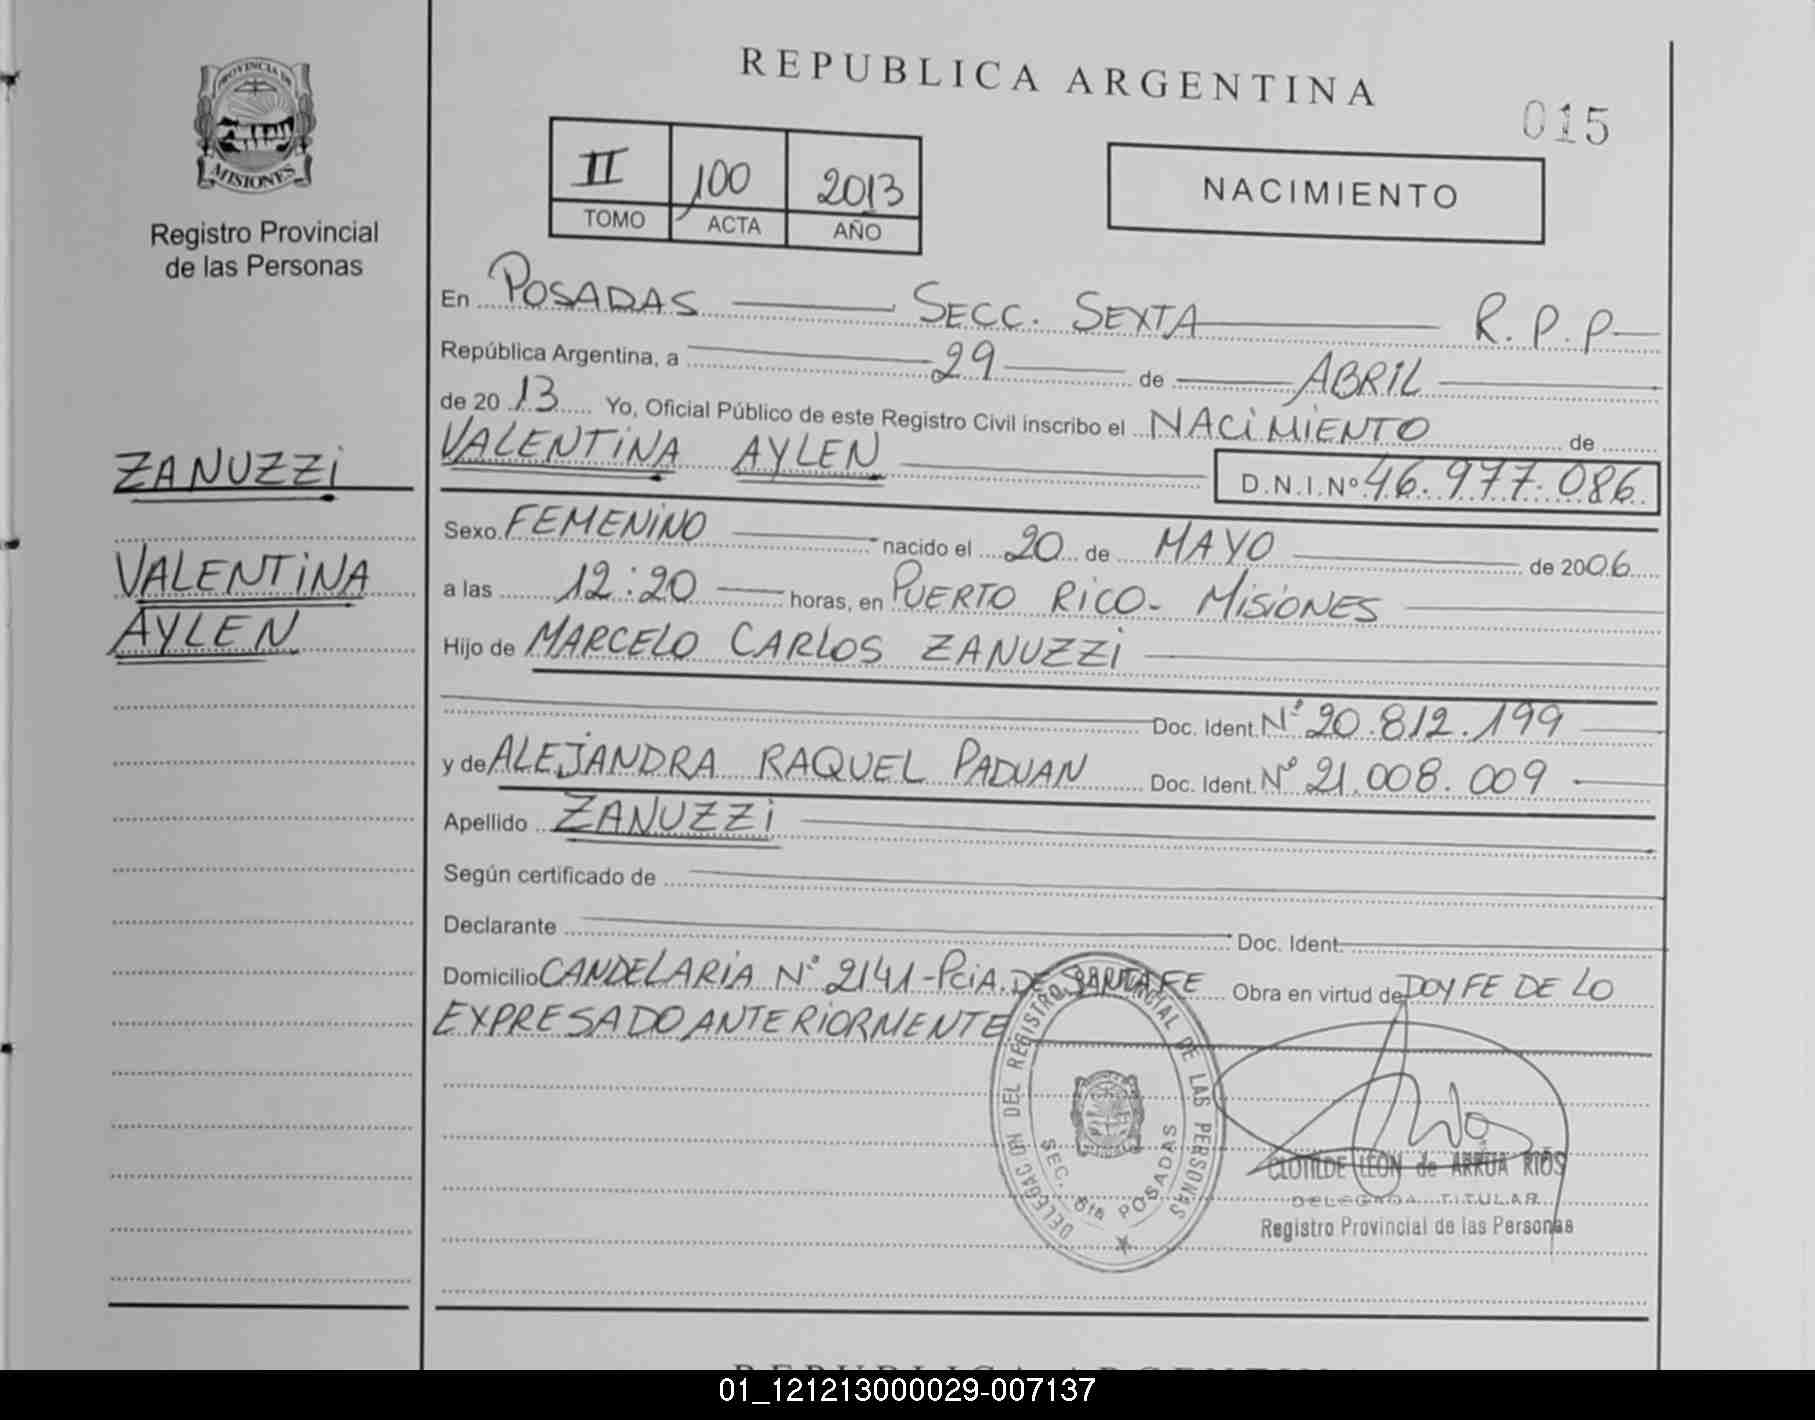 REPUBLICA ARGENTINA
015
PROVINCIA DE
MISIONES
Registro Provincial
de las Personas
II 100 2013
TOMO ACTA AÑO
NACIMIENTO
En POSADAS SECC. SEXTA R.P.P
República Argentina, a 29 de ABRIL
de 2013 Yo, Oficial Público de este Registro Civil inscribo el NACIMIENTO de
VALENTINA AYLEN D.N.I.Nº 46.977.086
ZANUZZI
VALENTINA
AYLEN
Sexo FEMENINO nacido el 20 de MAYO de 2006
a las 12:20 horas, en PUERTO RICO - MISIONES
Hijo de MARCELO CARLOS ZANUZZI
Doc. Ident. Nº 20.812.199
y de ALEJANDRA RAQUEL PADUAN Doc. Ident. Nº 21.008.009
Apellido ZANUZZI
Según certificado de
Declarante Doc. Ident.
Domicilio CANDELARIA Nº 2141 - PCIA. DE SANTA FE Obra en virtud de DOY FE DE LO
EXPRESADO ANTERIORMENTE
DELEGACION DEL REGISTRO PROVINCIAL DE LAS PERSONAS
SEC. 6ta POSADAS
CLOTILDE LEON de ARRUA RIOS
DELEGADA TITULAR
Registro Provincial de las Personas
REPUBLICA ARGENTINA
01_121213000029-007137